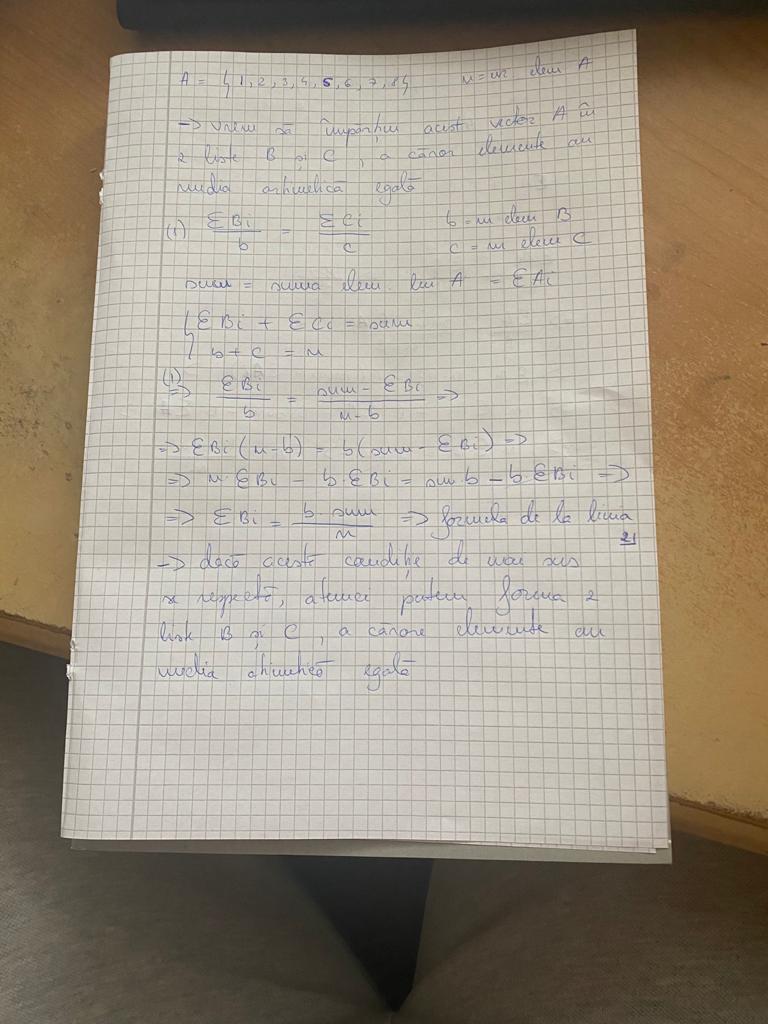 A = { 1, 2, 3, 4, 5, 6, 7, 8 } n = nr elem A
-> Vrem să împărțim acest vector A în
2 liste B și C, a căror elemente au
media aritmetică egală
(1) ΣBi / b = ΣCi / c b = nr elem B
c = nr elem C
sum = suma elem. lui A = ΣAi
{ ΣBi + ΣCi = sum
b + c = n
(1) => ΣBi / b = sum - ΣBi / n - b =>
=> ΣBi (n - b) = b (sum - ΣBi) =>
=> n · ΣBi - b · ΣBi = sum · b - b · ΣBi =>
=> ΣBi = b · sum / n => formula de la linia
21
-> dacă aceste condiție de mai sus
se respectă, atunci putem forma 2
liste B și C, a căror elemente au
media aritmetică egală